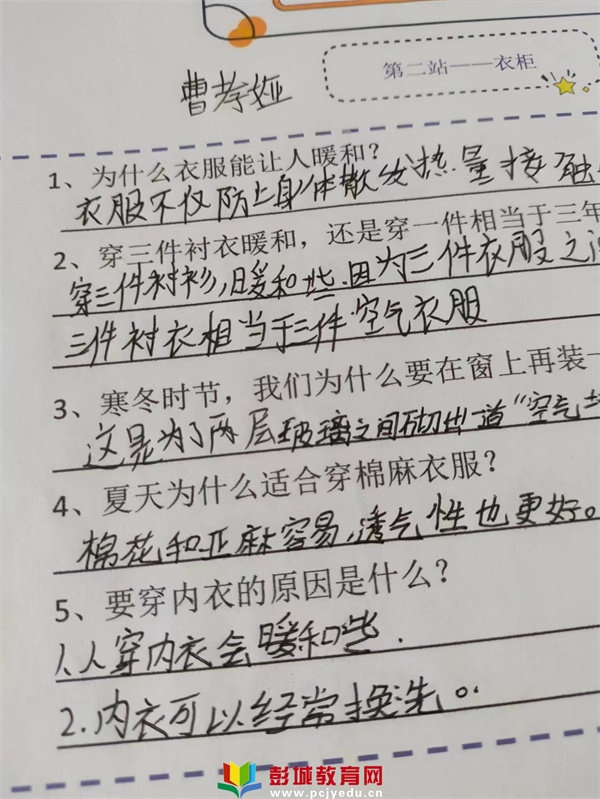 第二站——衣柜
曹孝娅
1、为什么衣服能让人暖和？
衣服不仅防止身体散发热量接触
2、穿三件衬衣暖和，还是穿一件相当于三年
穿三件衬衫,暖和些.因为三件衣服之间
三件衬衣相当于三件空气衣服
3、寒冬时节，我们为什么要在窗上再装一
这是为了两层玻璃之间砌出一道“空气
4、夏天为什么适合穿棉麻衣服？
棉花和亚麻容易,透气性也更好。
5、要穿内衣的原因是什么？
1.人穿内衣会暖和些.
2.内衣可以经常换洗。
彭城教育网
www.pcjyedu.cn